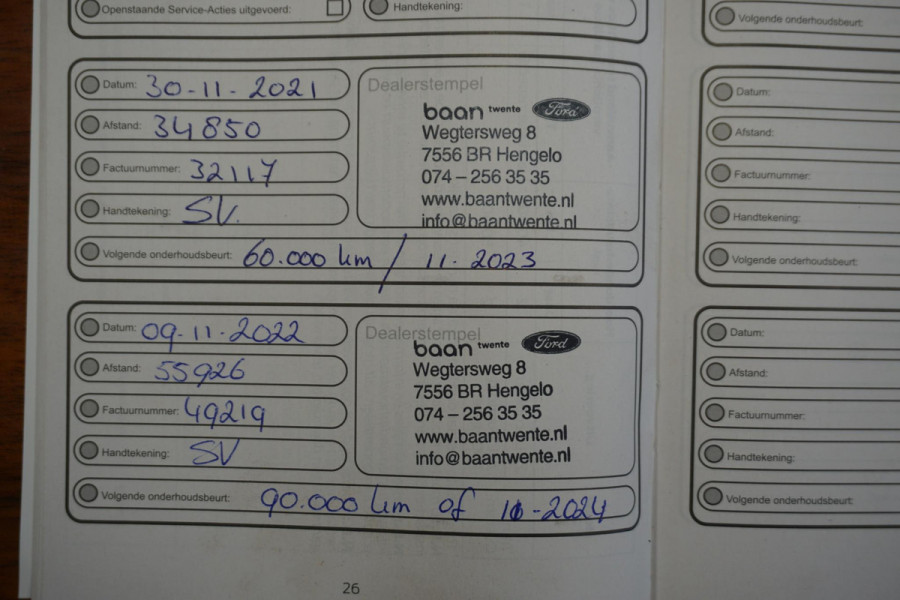 Openstaande Service-Acties uitgevoerd:
Handtekening:
Datum: 30-11-2021
Afstand: 34850
Factuurnummer: 32117
Handtekening: SV.
Dealerstempel
baan twente Ford
Wegtersweg 8
7556 BR Hengelo
074 – 256 35 35
www.baantwente.nl
info@baantwente.nl
Volgende onderhoudsbeurt: 60.000 km / 11. 2023
Datum: 09-11-2022
Afstand: 55926
Factuurnummer: 49219
Handtekening: SV
Dealerstempel
baan twente Ford
Wegtersweg 8
7556 BR Hengelo
074 – 256 35 35
www.baantwente.nl
info@baantwente.nl
Volgende onderhoudsbeurt: 90.000 km of -2024
26
Volgende onderhoudsbeurt:
Datum:
Afstand:
Factuurnummer:
Handtekening:
Volgende onderhoudsbeurt:
Datum:
Afstand:
Factuurnummer:
Handtekening:
Volgende onderhoudsbeurt: